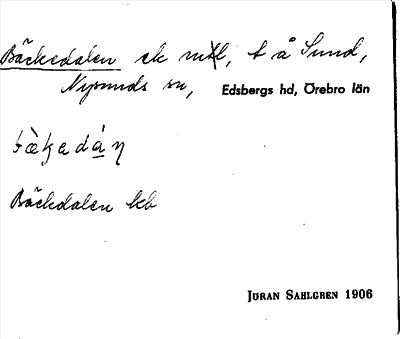 Bäckedalen ek mtl, t å Sund,
Nysunds sn, Edsbergs hd, Örebro län
Bäckdalen kb
JÖRAN SAHLGREN 1906